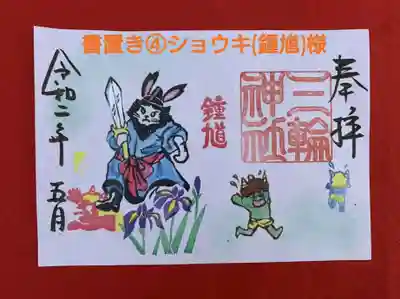 書置き④ショウキ(鍾馗)様
奉拝
三輪神社
鍾馗
令和二年 五月